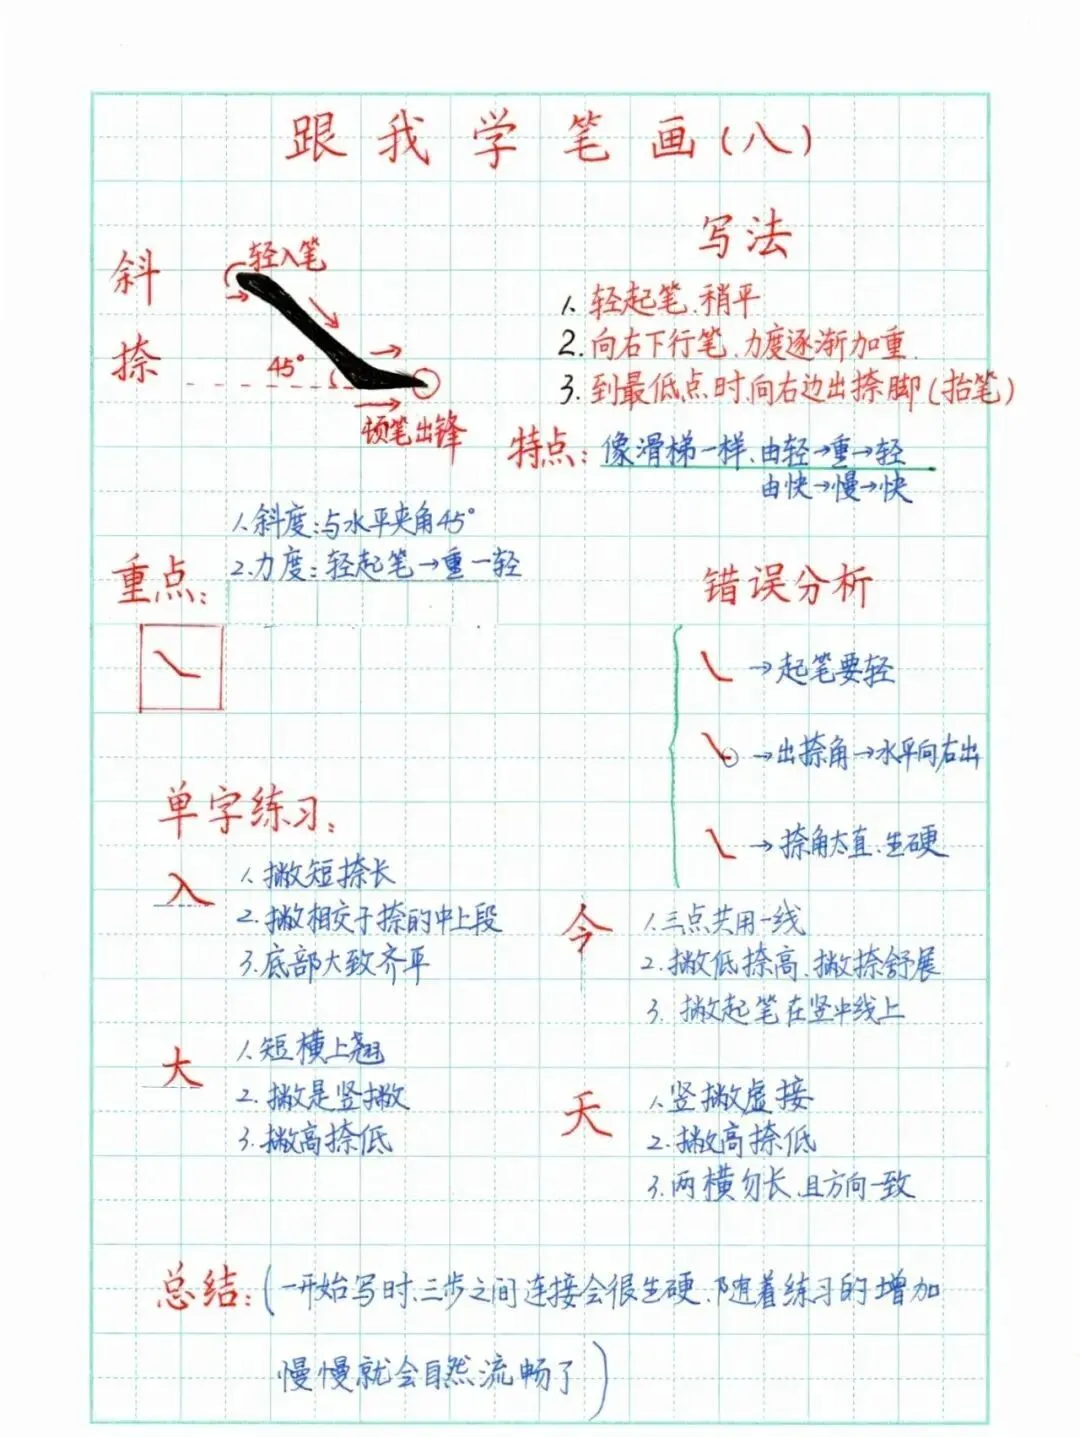 跟我学笔画(八)
斜捺
轻入笔
45°
顿笔出锋
写法
1. 轻起笔、稍平
2. 向右下行笔、力度逐渐加重.
3. 到最低点时、向右边出捺脚(抬笔)
特点: 像滑梯一样、由轻→重→轻
由快→慢→快
重点:
1. 斜度:与水平夹角45°
2. 力度:轻起笔→重—轻
错误分析
→起笔要轻
→出捺角→水平向右出
→捺角太直、生硬
单字练习:
入
1. 撇短捺长
2. 撇相交于捺的中上段
3. 底部大致齐平
今
1. 三点共用一线
2. 撇低捺高、撇捺舒展
3. 撇起笔在竖中线上
大
1. 短横上翘
2. 撇是竖撇
3. 撇高捺低
天
1. 竖撇虚接
2. 撇高捺低
3. 两横勿长、且方向一致
总结:(一开始写时、三步之间连接会很生硬、随着练习的增加
慢慢就会自然流畅了)